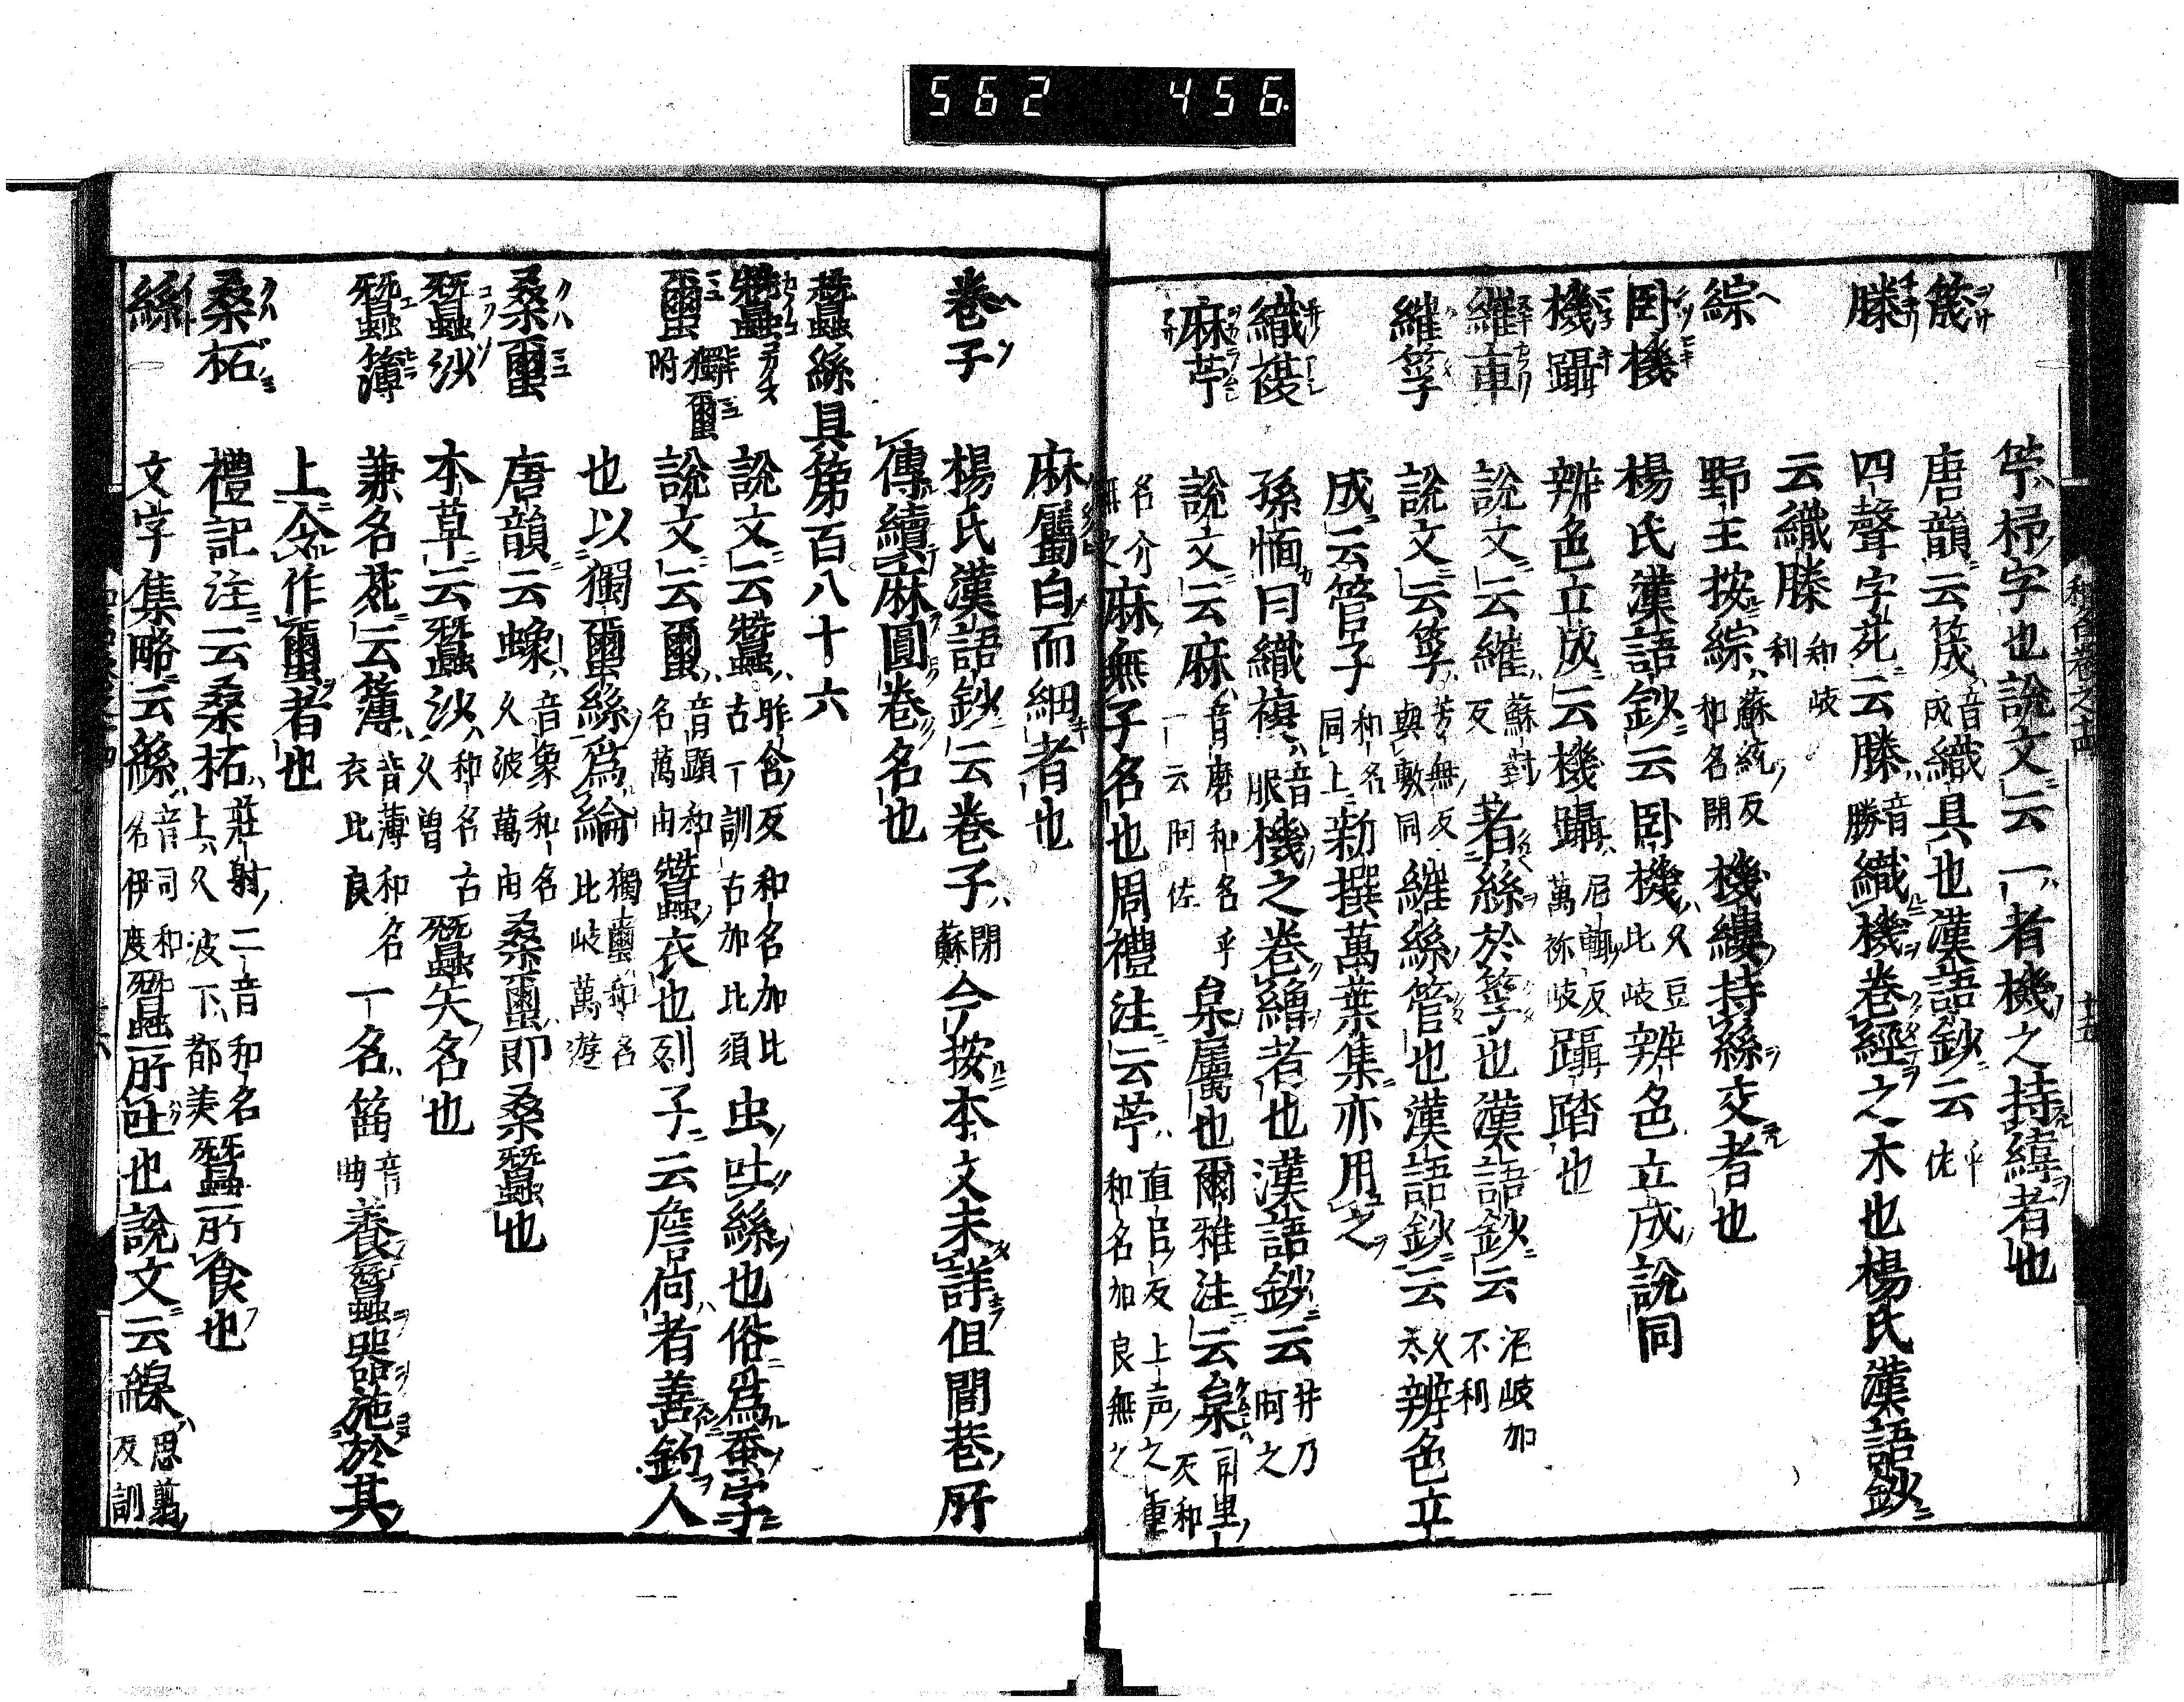 562 456
杼杼字也說文云一者機之持緯者也
筬 唐韻云筬音成織具也漢語鈔云乎佐
縢 四聲字苑云縢音勝織機卷經之木也楊氏漢語鈔
云織縢和岐利
綜 野王按綜蘇統反和名閇機縷持絲交者也
臥機 楊氏漢語鈔云臥機久豆比岐辨色立成說同
機躡 辨色立成云機躡尼輒反萬祢岐躡踏也
維車 說文云維蘇對反著絲於筟也漢語鈔云沼岐加不利
維筟 說文云筟芳無反與敷同維絲管也漢語鈔云久太辨色立
成云管子和名同上新撰萬葉集亦用之
織複 孫愐曰織複音服機之卷繒者也漢語鈔云井乃阿之
麻苧 說文云麻音磨和名乎一云阿佐枲屬也爾雅注云枲司里反和
名介無之麻無子名也周禮注云苧直呂反上声之重和名加良無之
麻屬白而細者也
卷子 楊氏漢語鈔云卷子閇蘇今按本文未詳但閭巷所
傳續麻圓卷名也
蠶絲具第百八十六
蠶 說文云蠶昨含反和名加比古一訓古加比須虫吐絲也俗爲蚕字
䌇 獨䌇附 說文云䌇音顯和名萬由蠶衣也列子云詹何者善釣人
也以獨䌇絲爲綸獨䌇和名比岐萬遊
桑䌇 唐韻云蟓音象和名久波萬由桑䌇即桑蠶也
蠶沙 本草云蠶沙和名古久曽蠶矢名也
蠶簿 兼名苑云簿音薄和名衣比良一名筁音曲養蠶器施於其
上令作䌇者也
桑柘 禮記注云桑柘莊射二音和名上久波下都美蠶所食也
絲 文字集略云絲音司和名伊度蠶所吐也說文云線思翦反訓